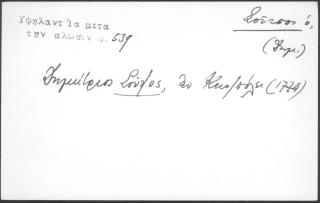 Ὑψηλαντ Τα μετα
την αλωσιν σ. 539
Σοῦτσος ὁ,
(Δημ.)
Δημήτριος Σοῦτσος, ἐν Κων/πόλει (1774)